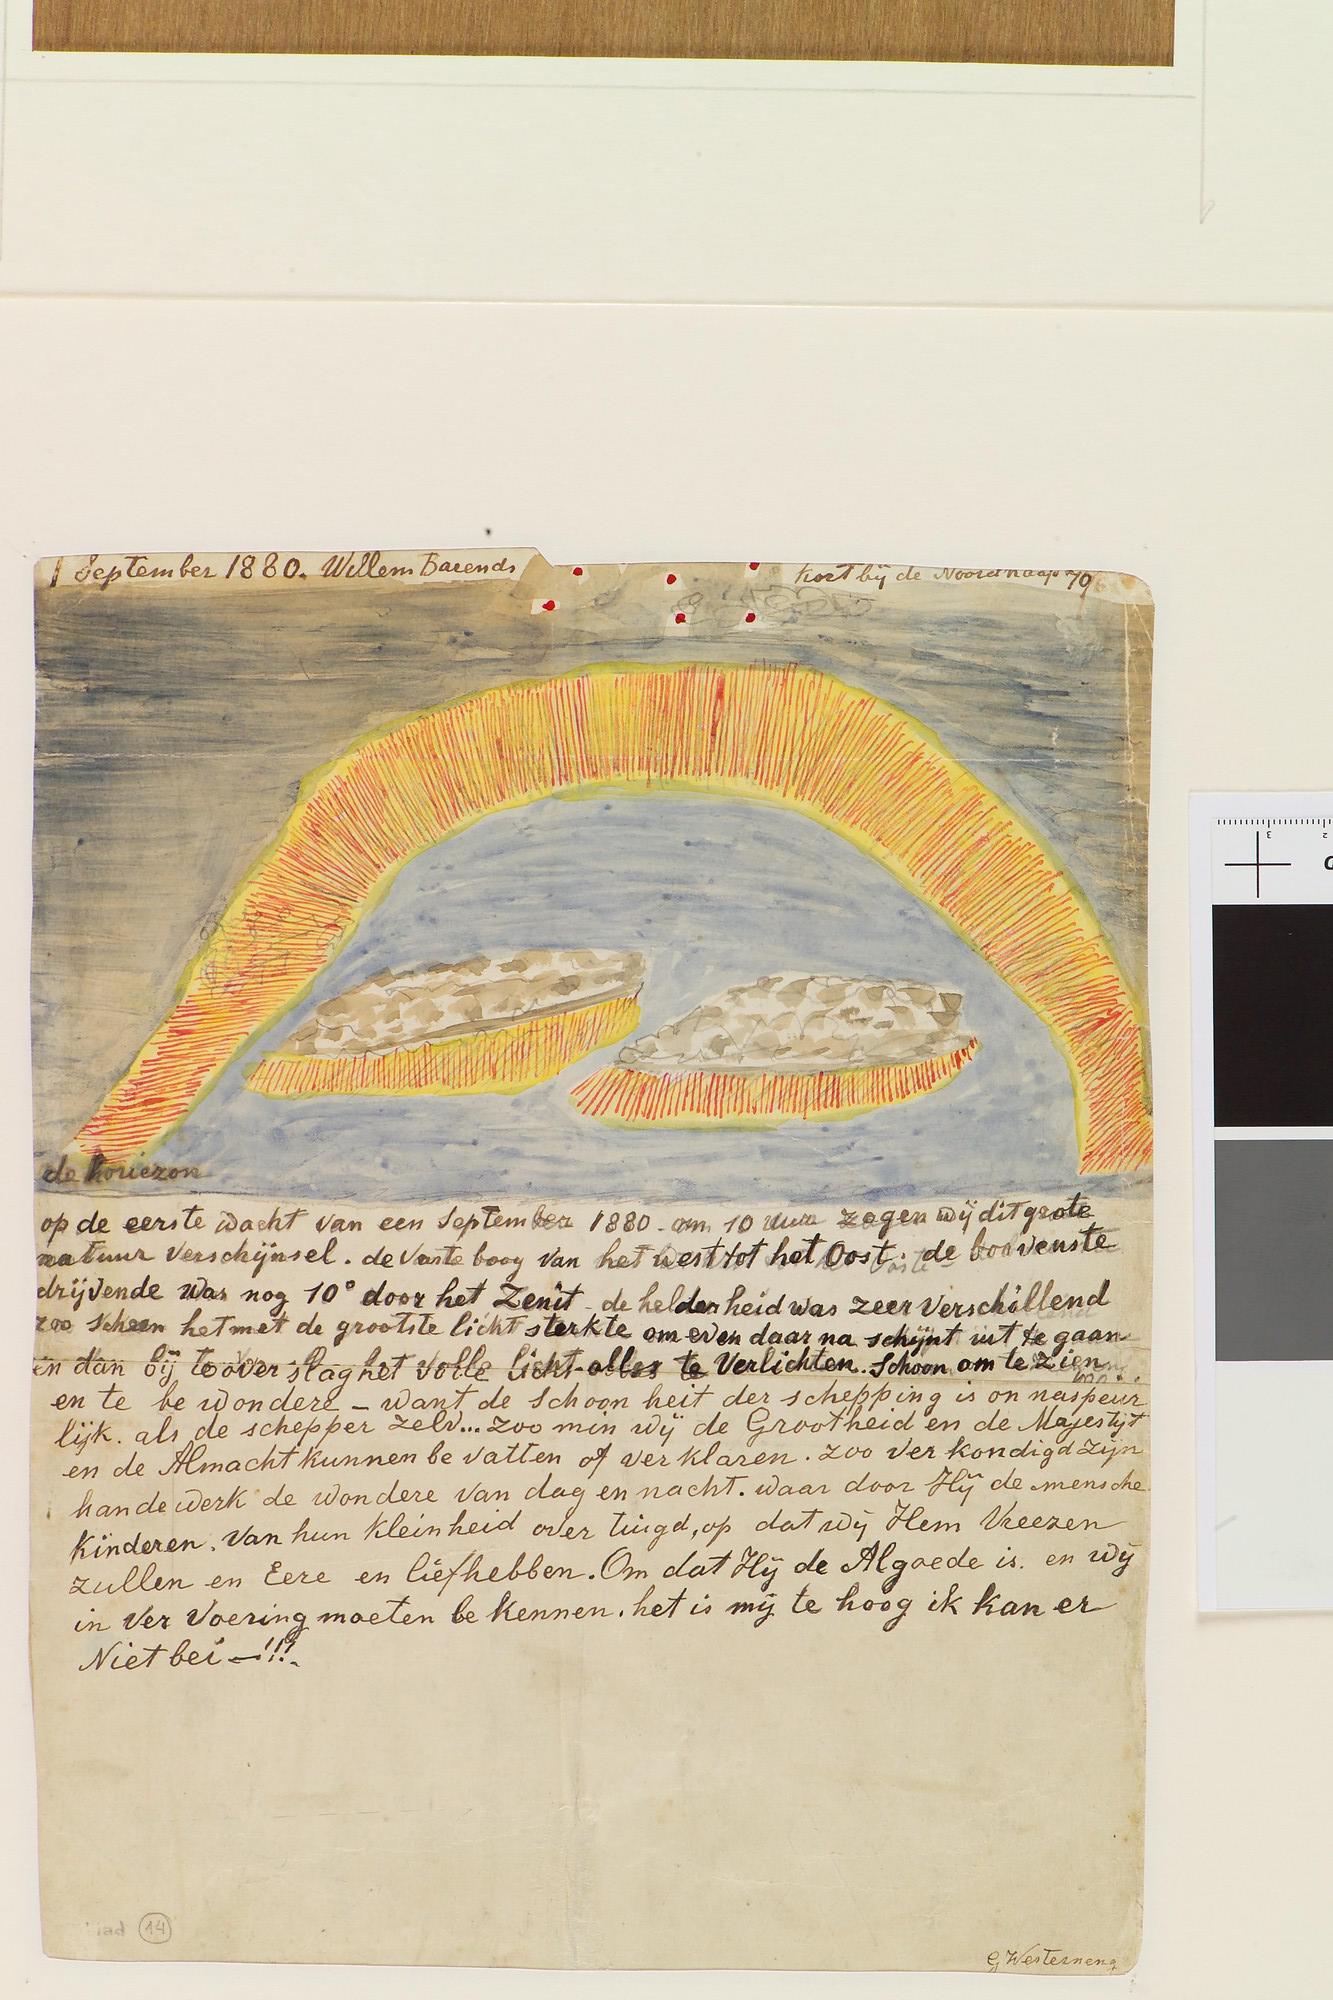 1 September 1880. Willem Barends
Kort bij de Noordkaap 70
de horiezon
op de eerste wacht van een September 1880 - om 10 uur zagen wij dit grote
natuur verschijnsel. de vaste boog van het west tot het Oost. de boovenste
drijvende was nog 10° door het Zenit - de helderheid was zeer verschillend
zoo scheen het met de grootste licht sterkte om even daar na schijnt uit te gaan
en dan bij toover slag het volle licht alles te verlichten. Schoon om te zien
en te be wondere - want de schoon heit der schepping is on naspeur
lijk. als de schepper zelv... zoo min wij de Grootheid en de Majestijt
en de Almacht kunnen be vatten of ver klaren. zoo ver kondigd zijn
hande werk de wondere van dag en nacht. waar door Hij de mensche
kinderen. van hun kleinheid over tuigd, op dat wij Hem Vreezen
zullen en Eere en liefhebben. Om dat Hij de Algoede is. en wij
in ver voering moeten be kennen. het is mij te hoog ik kan er
Niet bei -!!!.
14
G Westerneng
3
2